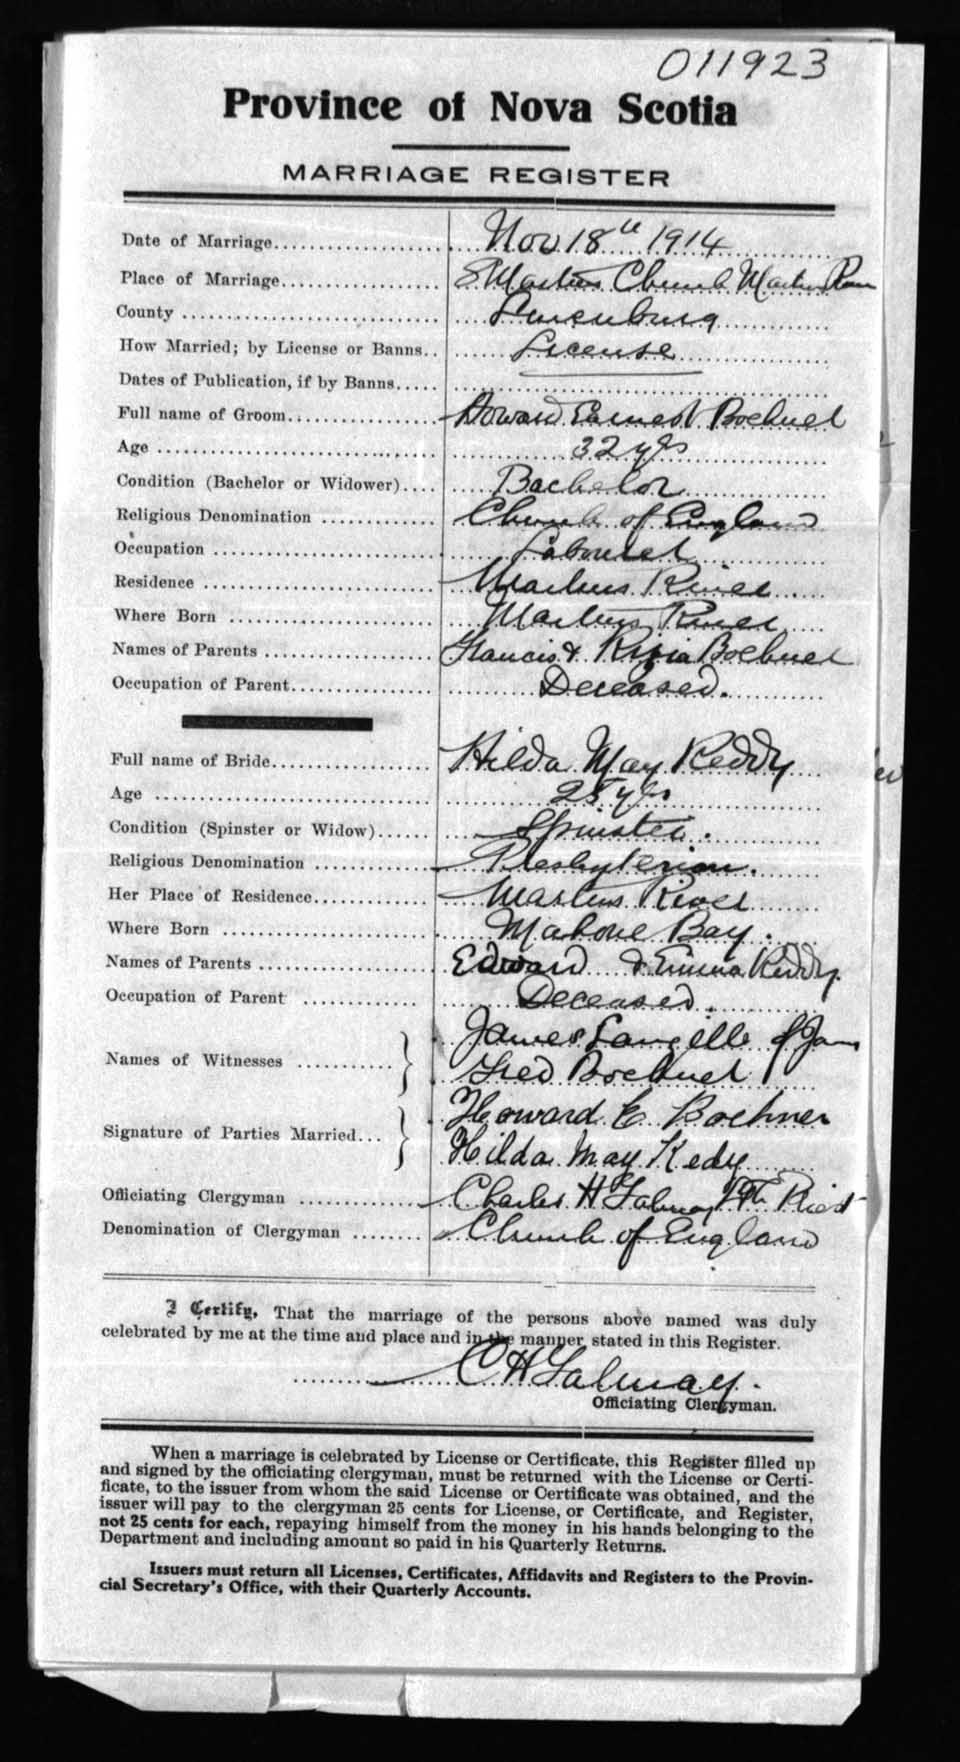 011923
Province of Nova Scotia
MARRIAGE REGISTER
Date of Marriage Nov 18th 1914
Place of Marriage S Martins Church Martins River
County Lunenburg
How Married; by License or Banns License
Dates of Publication, if by Banns
Full name of Groom Howard Earnest Boehner
Age 32 yrs
Condition (Bachelor or Widower) Bachelor
Religious Denomination Church of England
Occupation Labourer
Residence Martins River
Where Born Martins River
Names of Parents Francis & Boehner
Occupation of Parent Deceased.
Full name of Bride Hilda May Keddy
Age 25 yrs
Condition (Spinster or Widow) Spinster.
Religious Denomination Presbyterian.
Her Place of Residence Martins River
Where Born Mahone Bay.
Names of Parents Edward & Emma Keddy.
Occupation of Parent Deceased.
Names of Witnesses James Langille of Jam
Fred Boehner
Signature of Parties Married Howard E Boehner
Hilda May Kedy
Officiating Clergyman Charles H Talmay
Denomination of Clergyman Church of England
I Certify, That the marriage of the persons above named was duly
celebrated by me at the time and place and in the manner stated in this Register.
C H Talmay.
Officiating Clergyman.
When a marriage is celebrated by License or Certificate, this Register filled up
and signed by the officiating clergyman, must be returned with the License or Certi-
ficate, to the issuer from whom the said License or Certificate was obtained, and the
issuer will pay to the clergyman 25 cents for License, or Certificate, and Register,
not 25 cents for each, repaying himself from the money in his hands belonging to the
Department and including amount so paid in his Quarterly Returns.
Issuers must return all Licenses, Certificates, Affidavits and Registers to the Provin-
cial Secretary's Office, with their Quarterly Accounts.